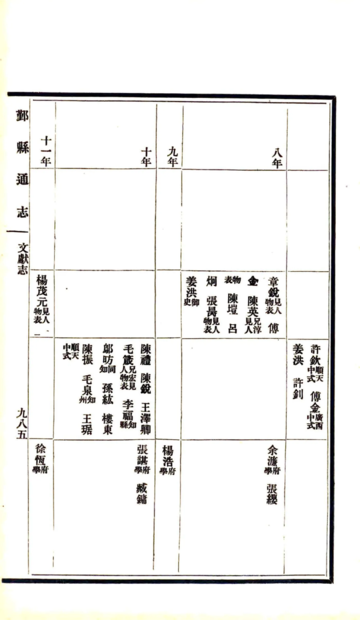 八年
九年
十年
十一年
章銳見人物表 傅
金 陳英兄淳見人
物表 陳塏 呂
炯 張昺見人物表
姜洪御史
楊茂元見人物表
許欽順天中式 傅金廣西中式
姜洪 許釗
陳禮 陳銳 王澤聊
毛䇓兄宏見人物表 李福知縣
鄔昉同知 孫紘 樓東
陳振 毛泉知州 王琚
順天中式
余濂府學 張纓
楊浩府學
張諶府學 臧鏞
徐恆府學
鄞縣通志
文獻志
九八五